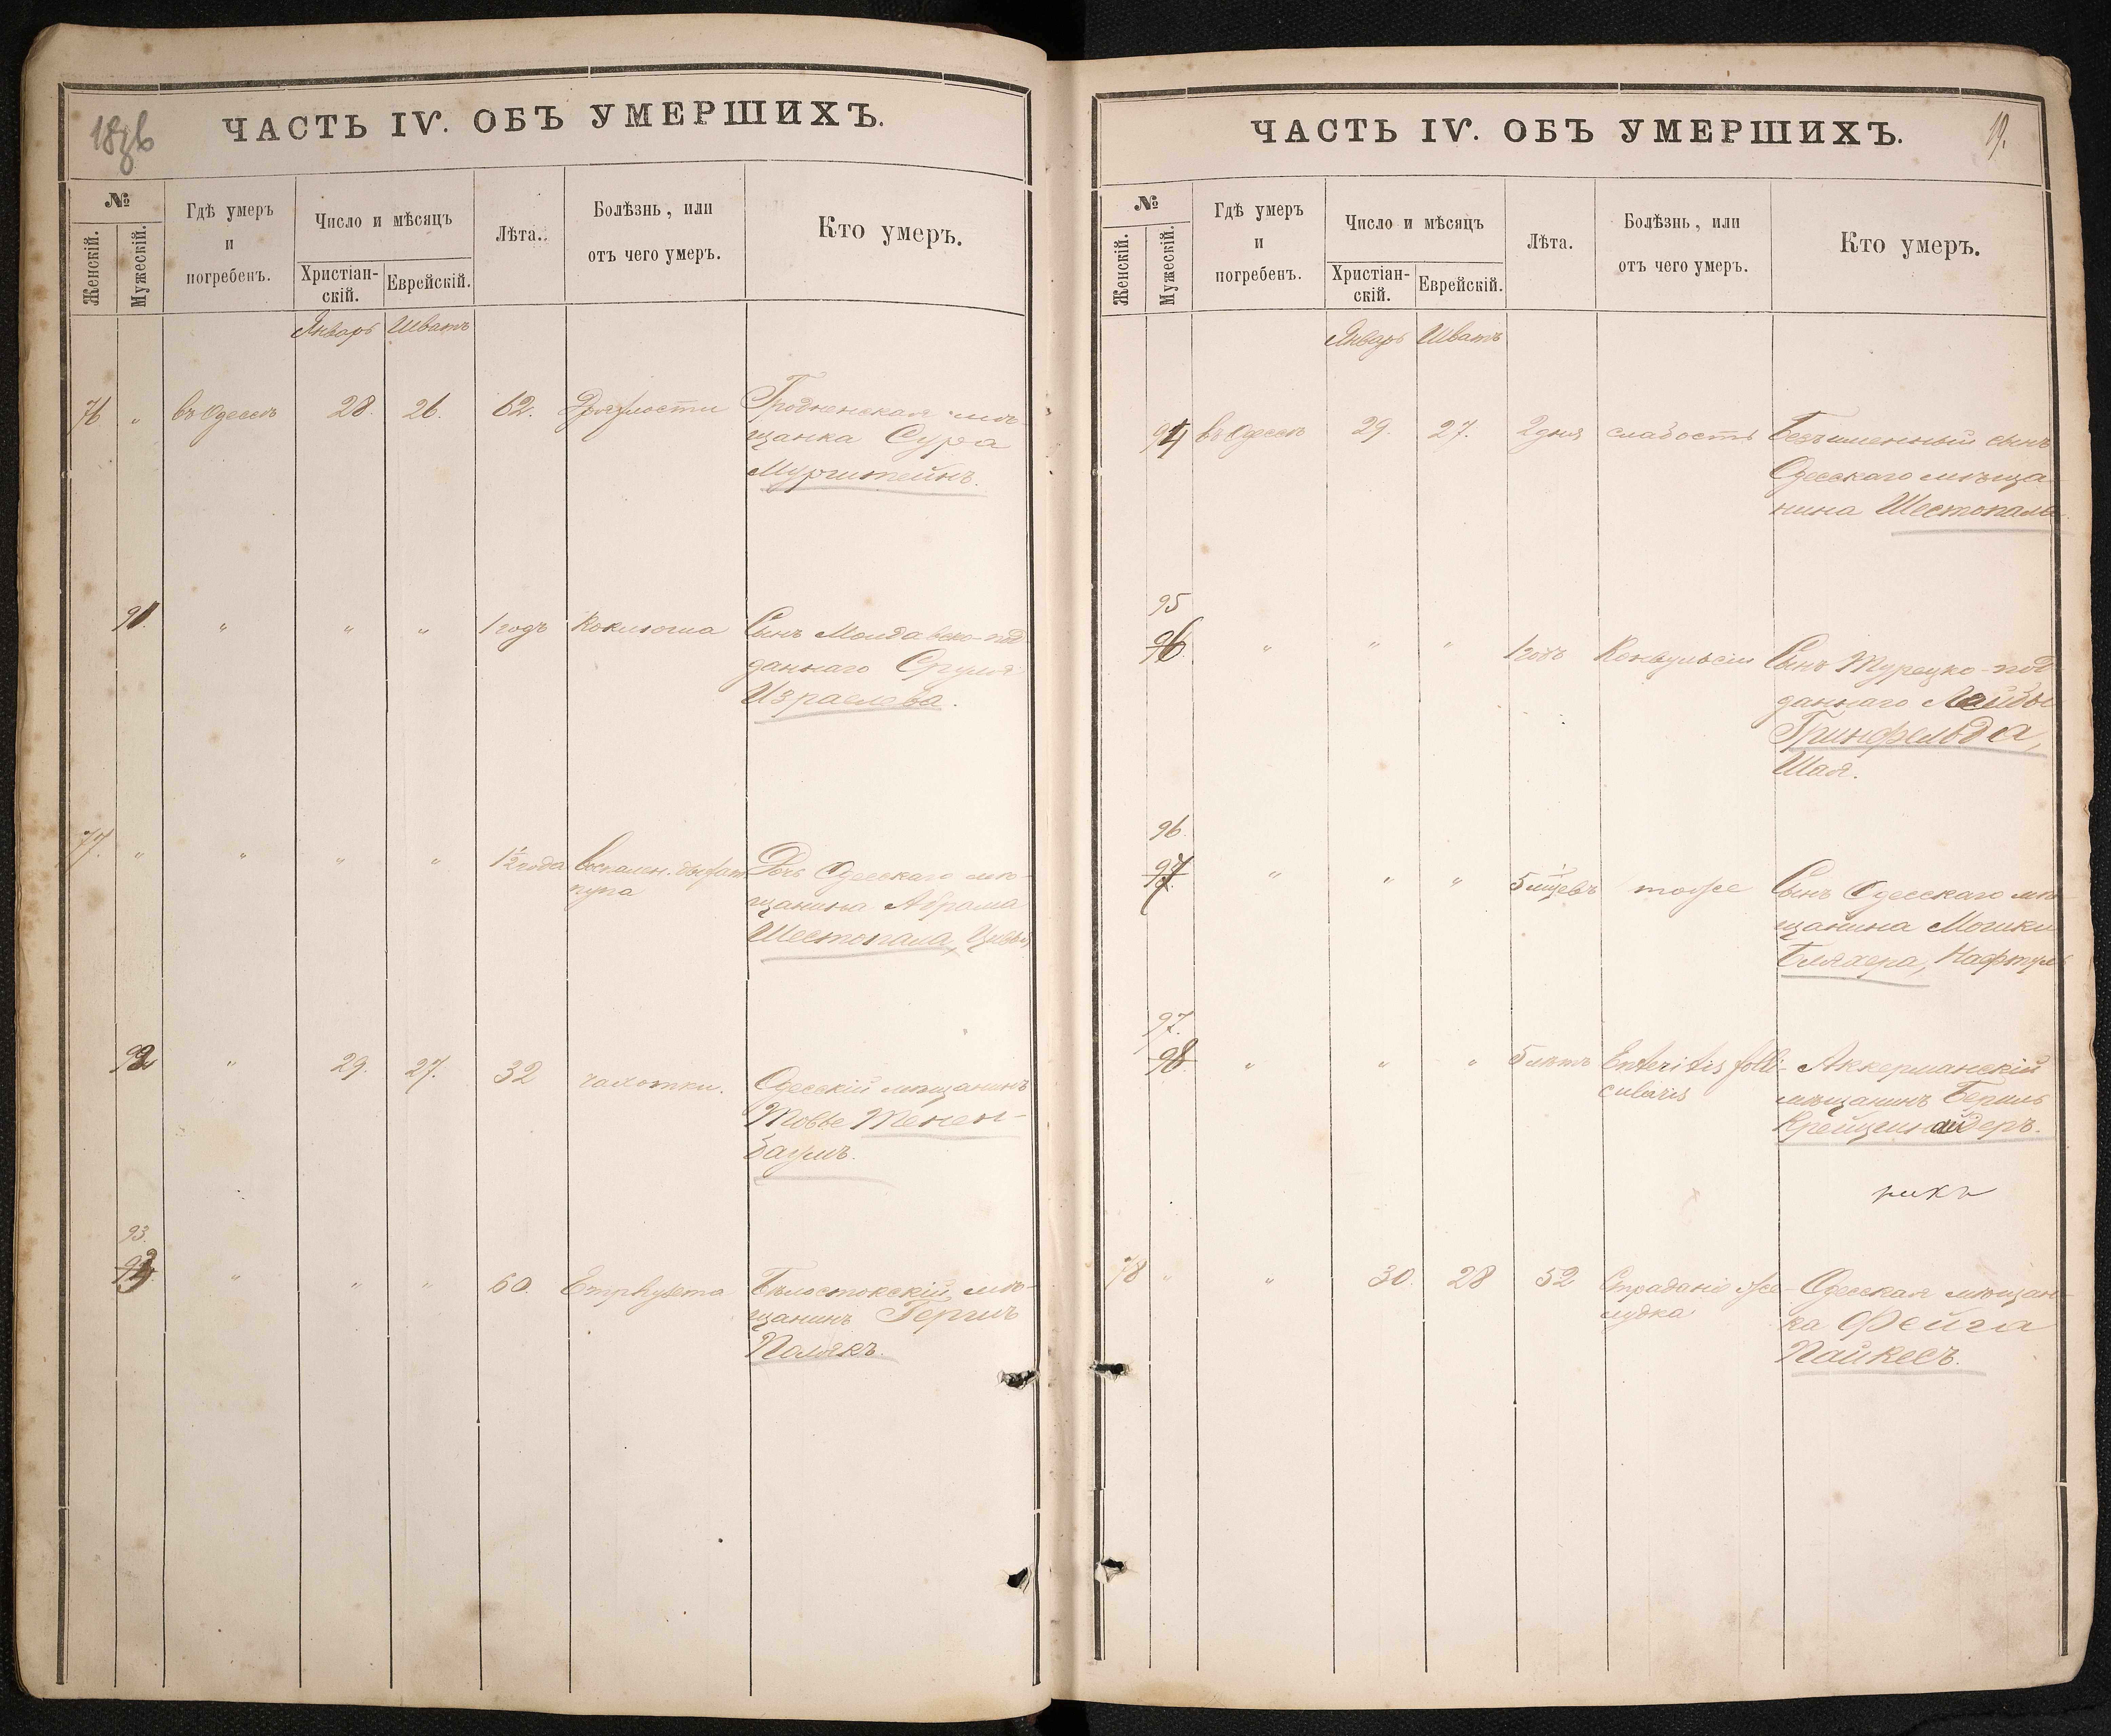 ЧАСТЬ IV. ОБЪ УМЕРШИХЪ.
№
Женскій.
Мужескій.
Гдѣ умеръ
и
погребенъ.
Число и мѣсяцъ
Христіан-
скій.
Еврейскій.
Лѣта.
Болѣзнь, или
отъ чего умеръ.
Кто умеръ.
Январь Шватъ
76 " въ Одессѣ 28. 26. 62. Дряхлости Гродненская мѣ-
щанка Сура
Мурштейнъ.
91. " " " 1 годъ Коклюша Сынъ Молдавско-под
даннаго Сруля
Израелева.
77. " " " " 1½ года Воспален. дыхат Дочь Одесскаго мѣ-
щанина Абрама
Шестопала,
92 " 29. 27. 32 чахотки. Одесскій мѣщанинъ
Товье Тенен-
баумъ.
93.
" " " 60. Emphysema Бѣлостокскій мѣ-
щанинъ Гершъ
Полякъ.
ЧАСТЬ IV. ОБЪ УМЕРШИХЪ.
19.
№
Женскій.
Мужескій.
Гдѣ умеръ
и
погребенъ.
Число и мѣсяцъ
Христіан-
скій.
Еврейскій.
Лѣта.
Болѣзнь, или
отъ чего умеръ.
Кто умеръ.
Январь Шватъ
94 въ Одессѣ 29. 27. 2 дня слабость Безъименный сынъ
Одесскаго мѣща-
нина Шестопаль
95
96 " " " 1 годъ Конвульсіи Сынъ Турецко-под
даннаго Лейбы
Гринфельда,
Шая.
96
97 " " " 5 мѣсцевъ тоже Сынъ Одесскаго мѣ-
щанина Мошки
Бляхера, Нафтуль
97.
98 " " " 5 лѣтъ Enteritis folli- Аккерманскій
cularis мѣщанинъ Берль
Крейцшнайдеръ.
78 " " 30. 28 52 Страданіе же- Одесская мѣщан-
лудка ка Фейга
Пайкесъ.